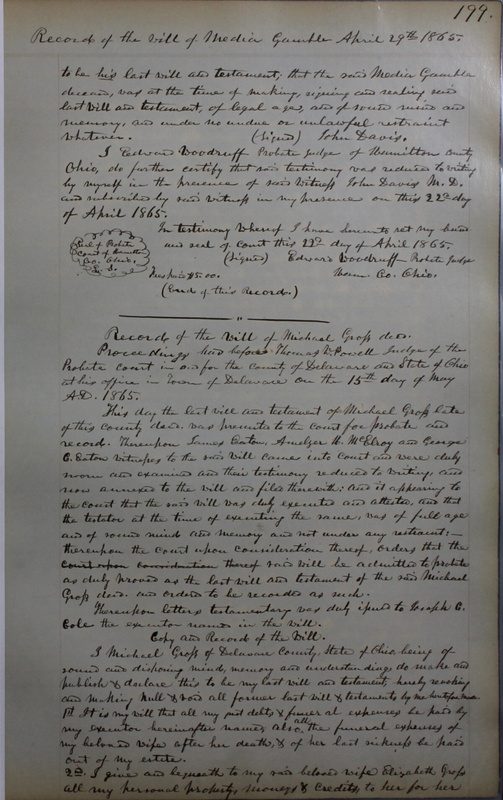 199.
Record of the Will of Media Gamble April 29th 1865.
to be his last will and testament, that the said Media Gamble
deceased, was at the time of making, signing and sealing said
last Will and testament, of legal age, and of sound mind and
memory, and under no undue or unlawful restraint
whatever. (Signed) John Davis.
I Edward Woodruff Probate Judge of Hamilton County
Ohio, do further certify that said testimony was reduced to writing
by myself in the presence of said Witness John Davis M. D.
and subscribed by said witness in my presence on this 22d day
of April 1865.
In testimony whereof I have hereunto set my hand
and seal of Court this 22d day of April 1865.
Seal of Probate
Court of Hamilton
Co. Ohio.
L. S.
(Signed) Edward Woodruff Probate Judge
Fees paid $5.00. Ham. Co. Ohio.
(End of this Record.)
Record of the Will of Michael Groß decd.
Proceedings had before Thomas W. Powell Judge of the
Probate court in and for the County of Delaware and State of Ohio
at his office in Town of Delaware on the 15th day of May
A.D. 1865.
This day the last will and testament of Michael Groß late
of this county decd. was presented to the Court for probate and
record. Thereupon James Eaton, H. McElroy and George
C. Eaton witneßes to the said Will came into Court and were duly
sworn and examined and their testimony reduced to writing and
now annexed to the will and filed therewith: and it appearing to
the court that the said will was duly executed and attested, and that
the testator at the time of executing the same, was of full age
and of sound mind and memory and not under any restraint:—
thereupon the court upon consideration thereof, orders that the
court upon consideration thereof said will be admitted to probate
as duly proved as the last will and testament of the said Michael
Groß decd. and ordered to be recorded as such.
Thereupon letters testamentary was duly ißued to Joseph C.
Cole the executor named in the will.
Copy and Record of the Will.
I Michael Groß of Delaware County, State of Ohio being of
sound and disposing mind, memory and understanding, do make and
publish & declare this to be my last will and testament hereby revoking
and making null & void all former last will & testaments by me heretofore made
1st It is my will that all my just debts & funeral expenses be paid by
my executor hereinafter named, also all the funeral expenses of
my beloved wife after her death, & of her last sickneß be paid
out of my estate.
2d. I give and bequeath to my said beloved wife Elizabeth Groß
all my personal property, moneys & credits, to her for her